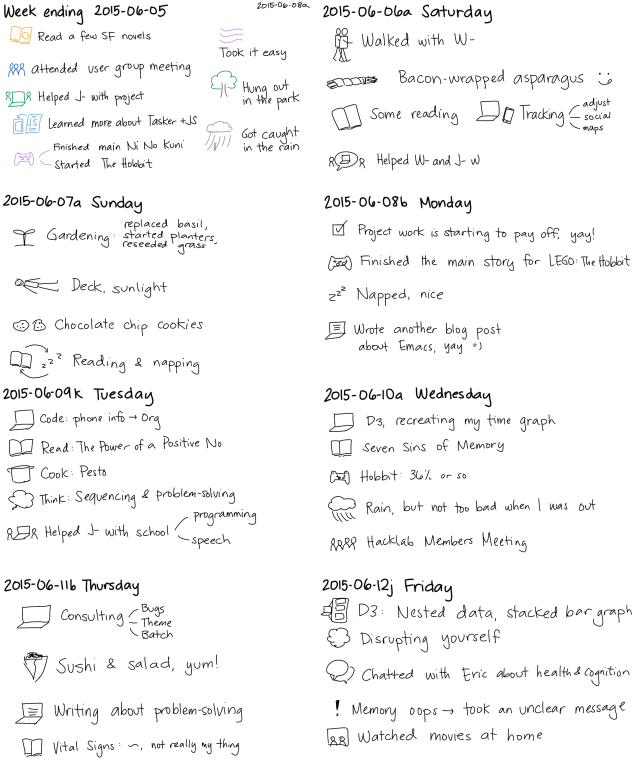 Week ending 2015-06-05
2015-06-08a
Read a few SF novels
attended user group meeting
Helped J- with project
Learned more about Tasker + JS
Finished main Ni No Kuni
Started The Hobbit
Took it easy
Hung out
in the park
Got caught
in the rain
2015-06-06a Saturday
Walked with W-
Bacon-wrapped asparagus
Some reading
Tracking
adjust
social
maps
Helped W- and J- w
2015-06-07a Sunday
Gardening:
replaced basil,
started planters,
reseeded grass
Deck, sunlight
Chocolate chip cookies
zzz
Reading & napping
2015-06-08b Monday
Project work is starting to pay off, yay!
Finished the main story for LEGO: The Hobbit
zzz Napped, nice
Wrote another blog post
about Emacs, yay =)
2015-06-09k Tuesday
Code: phone info → Org
Read: The Power of a Positive No
Cook: Pesto
Think: Sequencing & problem-solving
Helped J- with school
programming
speech
2015-06-10a Wednesday
D3, recreating my time graph
Seven Sins of Memory
Hobbit: 36% or so
Rain, but not too bad when I was out
Hacklab Members Meeting
2015-06-11b Thursday
Consulting
Bugs
Theme
Batch
Sushi & salad, yum!
Writing about problem-solving
Vital Signs: ~, not really my thing
2015-06-12j Friday
D3: Nested data, stacked bar graph
Disrupting yourself
Chatted with Eric about health & cognition
! Memory oops → took an unclear message
Watched movies at home